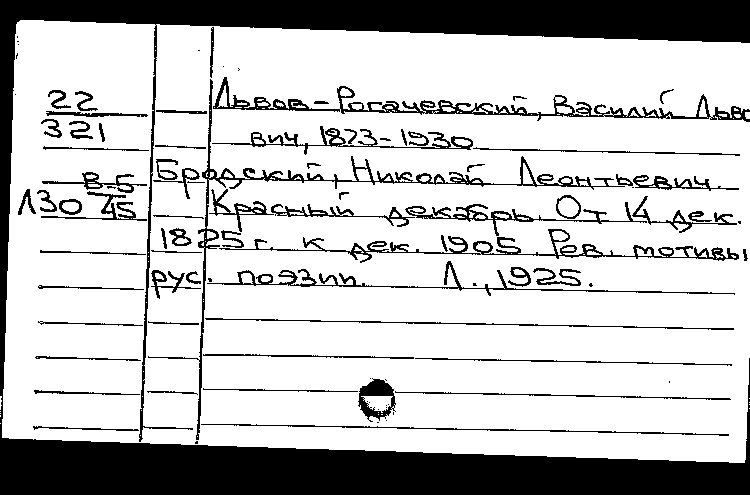 22 Львов-Рогачевский, Василий Льво
321 вич, 1873-1930
Бродский, Николай Леонтьевич.
В-5
Л30 45 Красный декабрь. От 14 дек.
1825 г. к дек. 1905. Рев. мотивы
рус. поэзии. Л., 1925.